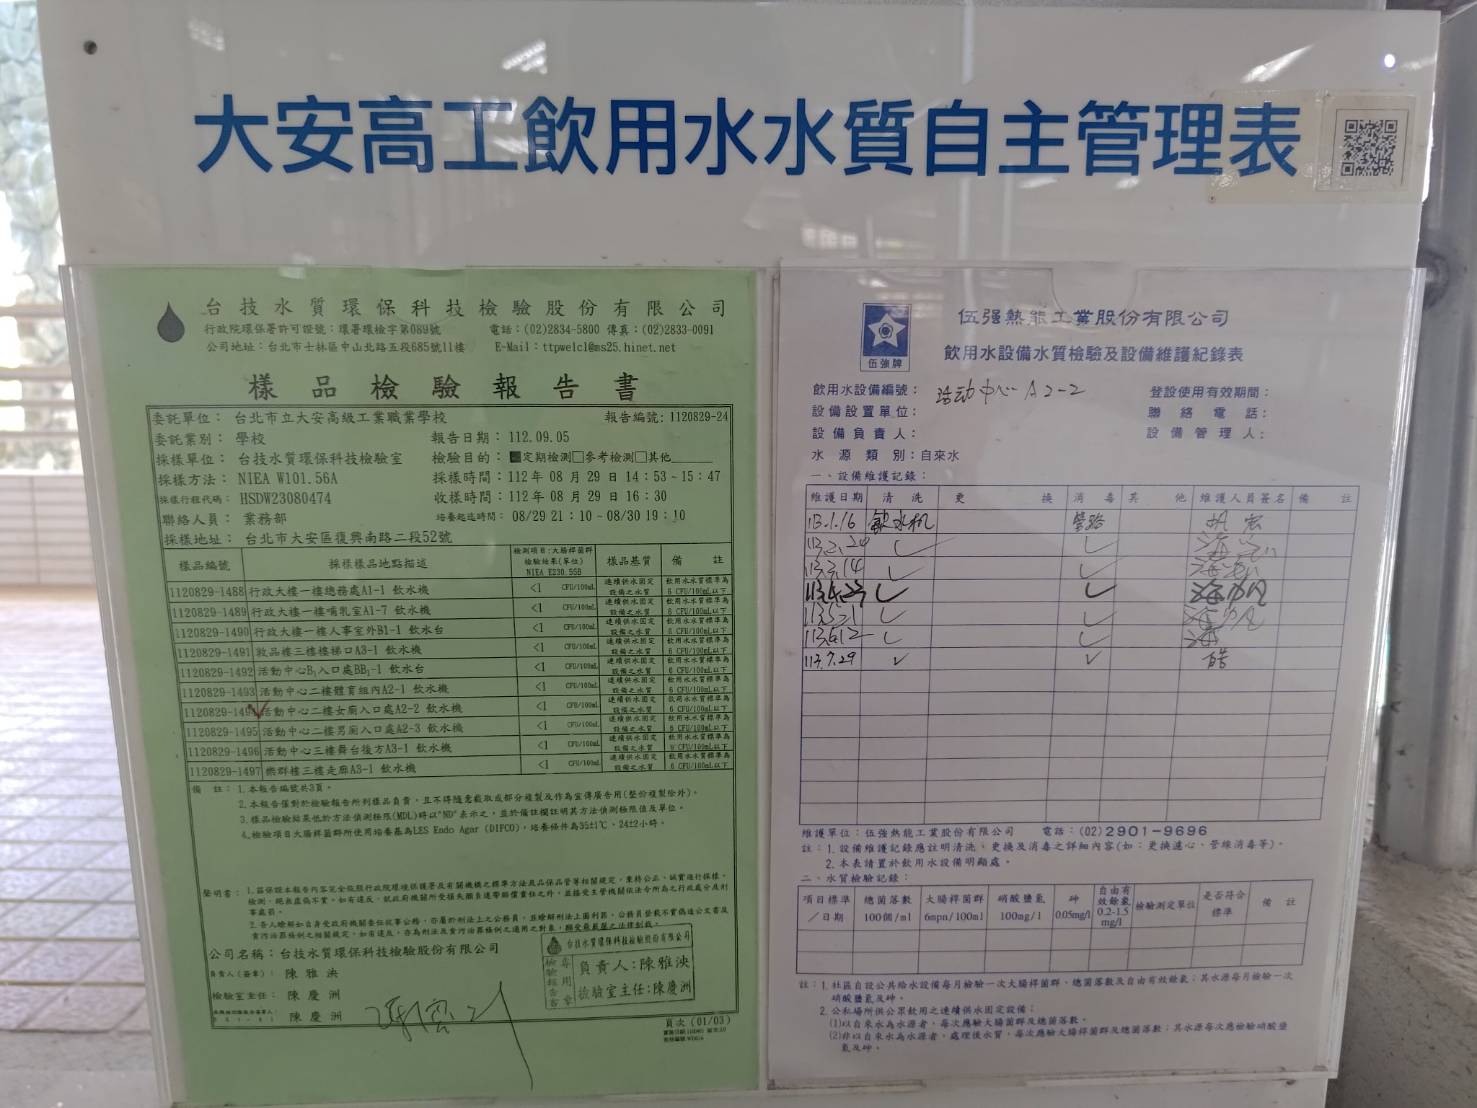 大安高工飲用水水質自主管理表
台技水質環保科技檢驗股份有限公司
行政院環保署許可證號：環署環檢字第089號 電話：(02)2834-5800 傳真：(02)2833-0091
公司地址：台北市士林區中山北路五段685號11樓 E-Mail：ttpwelcl@ms25.hinet.net
樣品檢驗報告書
委託單位：台北市立大安高級工業職業學校 報告編號：1120829-24
委託業別：學校 報告日期：112.09.05
採樣單位：台技水質環保科技檢驗室 檢驗目的：■定期檢測□參考檢測□其他
採樣方法：NIEA W101.56A 採樣時間：112年 08 月 29 日 14：53 ~ 15：47
採樣行程代碼：HSDW23080474 收樣時間：112年 08 月 29 日 16：30
聯絡人員：業務部 培養起迄時間：08/29 21：10 ~ 08/30 19：10
採樣地址：台北市大安區復興南路二段52號
樣品編號 採樣樣品地點描述 檢測項目：大腸桿菌群 檢驗結果(單位) NIEA E230.55B 樣品基質 備註
1120829-1488 行政大樓一樓總務處A1-1 飲水機 <1 CFU/100mL 連續供水固定設備之水質 飲用水水質標準為6 CFU/100mL以下
1120829-1489 行政大樓一樓哺乳室A1-7 飲水機 <1 CFU/100mL 連續供水固定設備之水質 飲用水水質標準為6 CFU/100mL以下
1120829-1490 行政大樓一樓人事室外B1-1 飲水台 <1 CFU/100mL 連續供水固定設備之水質 飲用水水質標準為6 CFU/100mL以下
1120829-1491 敦品樓三樓樓梯口A3-1 飲水機 <1 CFU/100mL 連續供水固定設備之水質 飲用水水質標準為6 CFU/100mL以下
1120829-1492 活動中心B1入口處BB1-1 飲水台 <1 CFU/100mL 連續供水固定設備之水質 飲用水水質標準為6 CFU/100mL以下
1120829-1493 活動中心二樓體育組內A2-1 飲水機 <1 CFU/100mL 連續供水固定設備之水質 飲用水水質標準為6 CFU/100mL以下
1120829-149 活動中心二樓女廁入口處A2-2 飲水機 <1 CFU/100mL 連續供水固定設備之水質 飲用水水質標準為6 CFU/100mL以下
1120829-1495 活動中心二樓男廁入口處A2-3 飲水機 <1 CFU/100mL 連續供水固定設備之水質 飲用水水質標準為6 CFU/100mL以下
1120829-1496 活動中心三樓舞台後方A3-1 飲水機 <1 CFU/100mL 連續供水固定設備之水質 飲用水水質標準為6 CFU/100mL以下
1120829-1497 樂群樓三樓走廊A3-1 飲水機 <1 CFU/100mL 連續供水固定設備之水質 飲用水水質標準為6 CFU/100mL以下
備註：1.本報告編號共3頁。
2.本報告僅對於檢驗報告所列樣品負責，且不得隨意截取或部分複製及作為宣傳廣告用(整份複製除外)。
3.樣品檢驗結果低於方法偵測極限(MDL)時以"ND"表示之，並於備註欄註明其方法偵測極限值及單位。
4.檢驗項目大腸桿菌群所使用培養基為LES Endo Agar (DIFCO)，培養條件為35±1℃、24±2小時。
聲明書：1.茲保證本報告內容完全依照行政院環境保護署及有關機構之標準方法及品保品管等相關規定，秉持公正、誠實進行採樣、
檢測，絕無虛偽不實，如有違反，就政府機關所受損失願負連帶賠償責任之外，並接受主管機關依法令所為之行政處分及刑
事處罰。
公司名稱：台技水質環保科技檢驗股份有限公司
負責人(簽章)：陳雅泱
檢驗室主任：陳慶洲
陳慶洲
台技水質環保科技檢驗股份有限公司
檢驗報告專用章
負責人：陳雅泱
檢驗室主任：陳慶洲
頁次 (01/03)
伍強牌
伍强熱能工業股份有限公司
飲用水設備水質檢驗及設備維護紀錄表
飲用水設備編號：活动中心 A2-2 登設使用有效期間：
設備設置單位： 聯絡電話：
設備負責人： 設備管理人：
水源類別：自來水
一、設備維護記錄：
維護日期 清洗 更換 消毒 其他 維護人員簽名 備註
113.1.16 飲水机 管路
113.2.24
113.3.14
113.5.21
113.6.12
113.7.29
維護單位：伍強熱能工業股份有限公司 電話：(02)2901-9696
註：1.設備維護記錄應註明清洗、更換及消毒之詳細內容(如：更換濾心、管線消毒等)。
2.本表請置於飲用水設備明顯處。
二、水質檢驗記錄：
項目標準／日期 總菌落數 100個/ml 大腸桿菌群 6mpn/100ml 硝酸鹽氮 100mg/l 砷 0.05mg/l 自由有效餘氯 0.2-1.5 mg/l 檢驗測定單位 是否符合標準 備註
註：1.社區自設公共給水設備每月檢驗一次大腸桿菌群、總菌落數及自由有效餘氯；其水源每月檢驗一次
硝酸鹽氮及砷。
2.公私場所供公眾飲用之連續供水固定設備：
(1)以自來水為水源者，每次應驗大腸菌群及總菌落數。
(2)非以自來水為水源者，處理後水質，每次應驗大腸桿菌群及總菌落數；其水源每次應檢驗硝酸鹽
氮及砷。